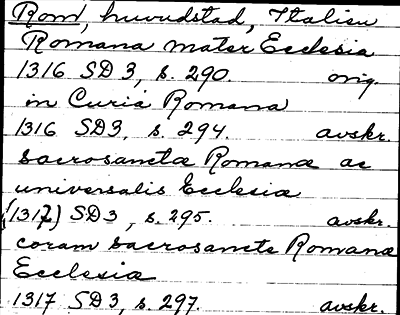 Rom, huvudstad, Italien
Romana mater Ecclesia
1316 SD 3, s. 290. orig.
in Curia Romana
1316 SD3, s. 294. avskr.
sacrosanctæ Romanæ ac
universalis Ecclesiæ
(1317) SD3, s. 295. avskr.
coram sacrosancte Romanæ
Ecclesiæ
1317 SD3, s. 297. avskr.